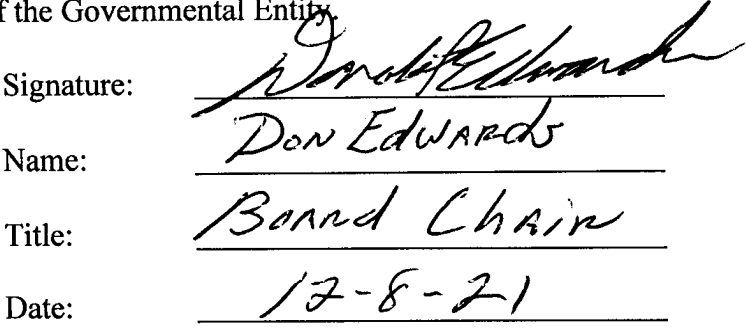 f the Governmental Entity.
Signature: Donald F Edwards
Name: Don Edwards
Title: Board Chair
Date: 12-8-21